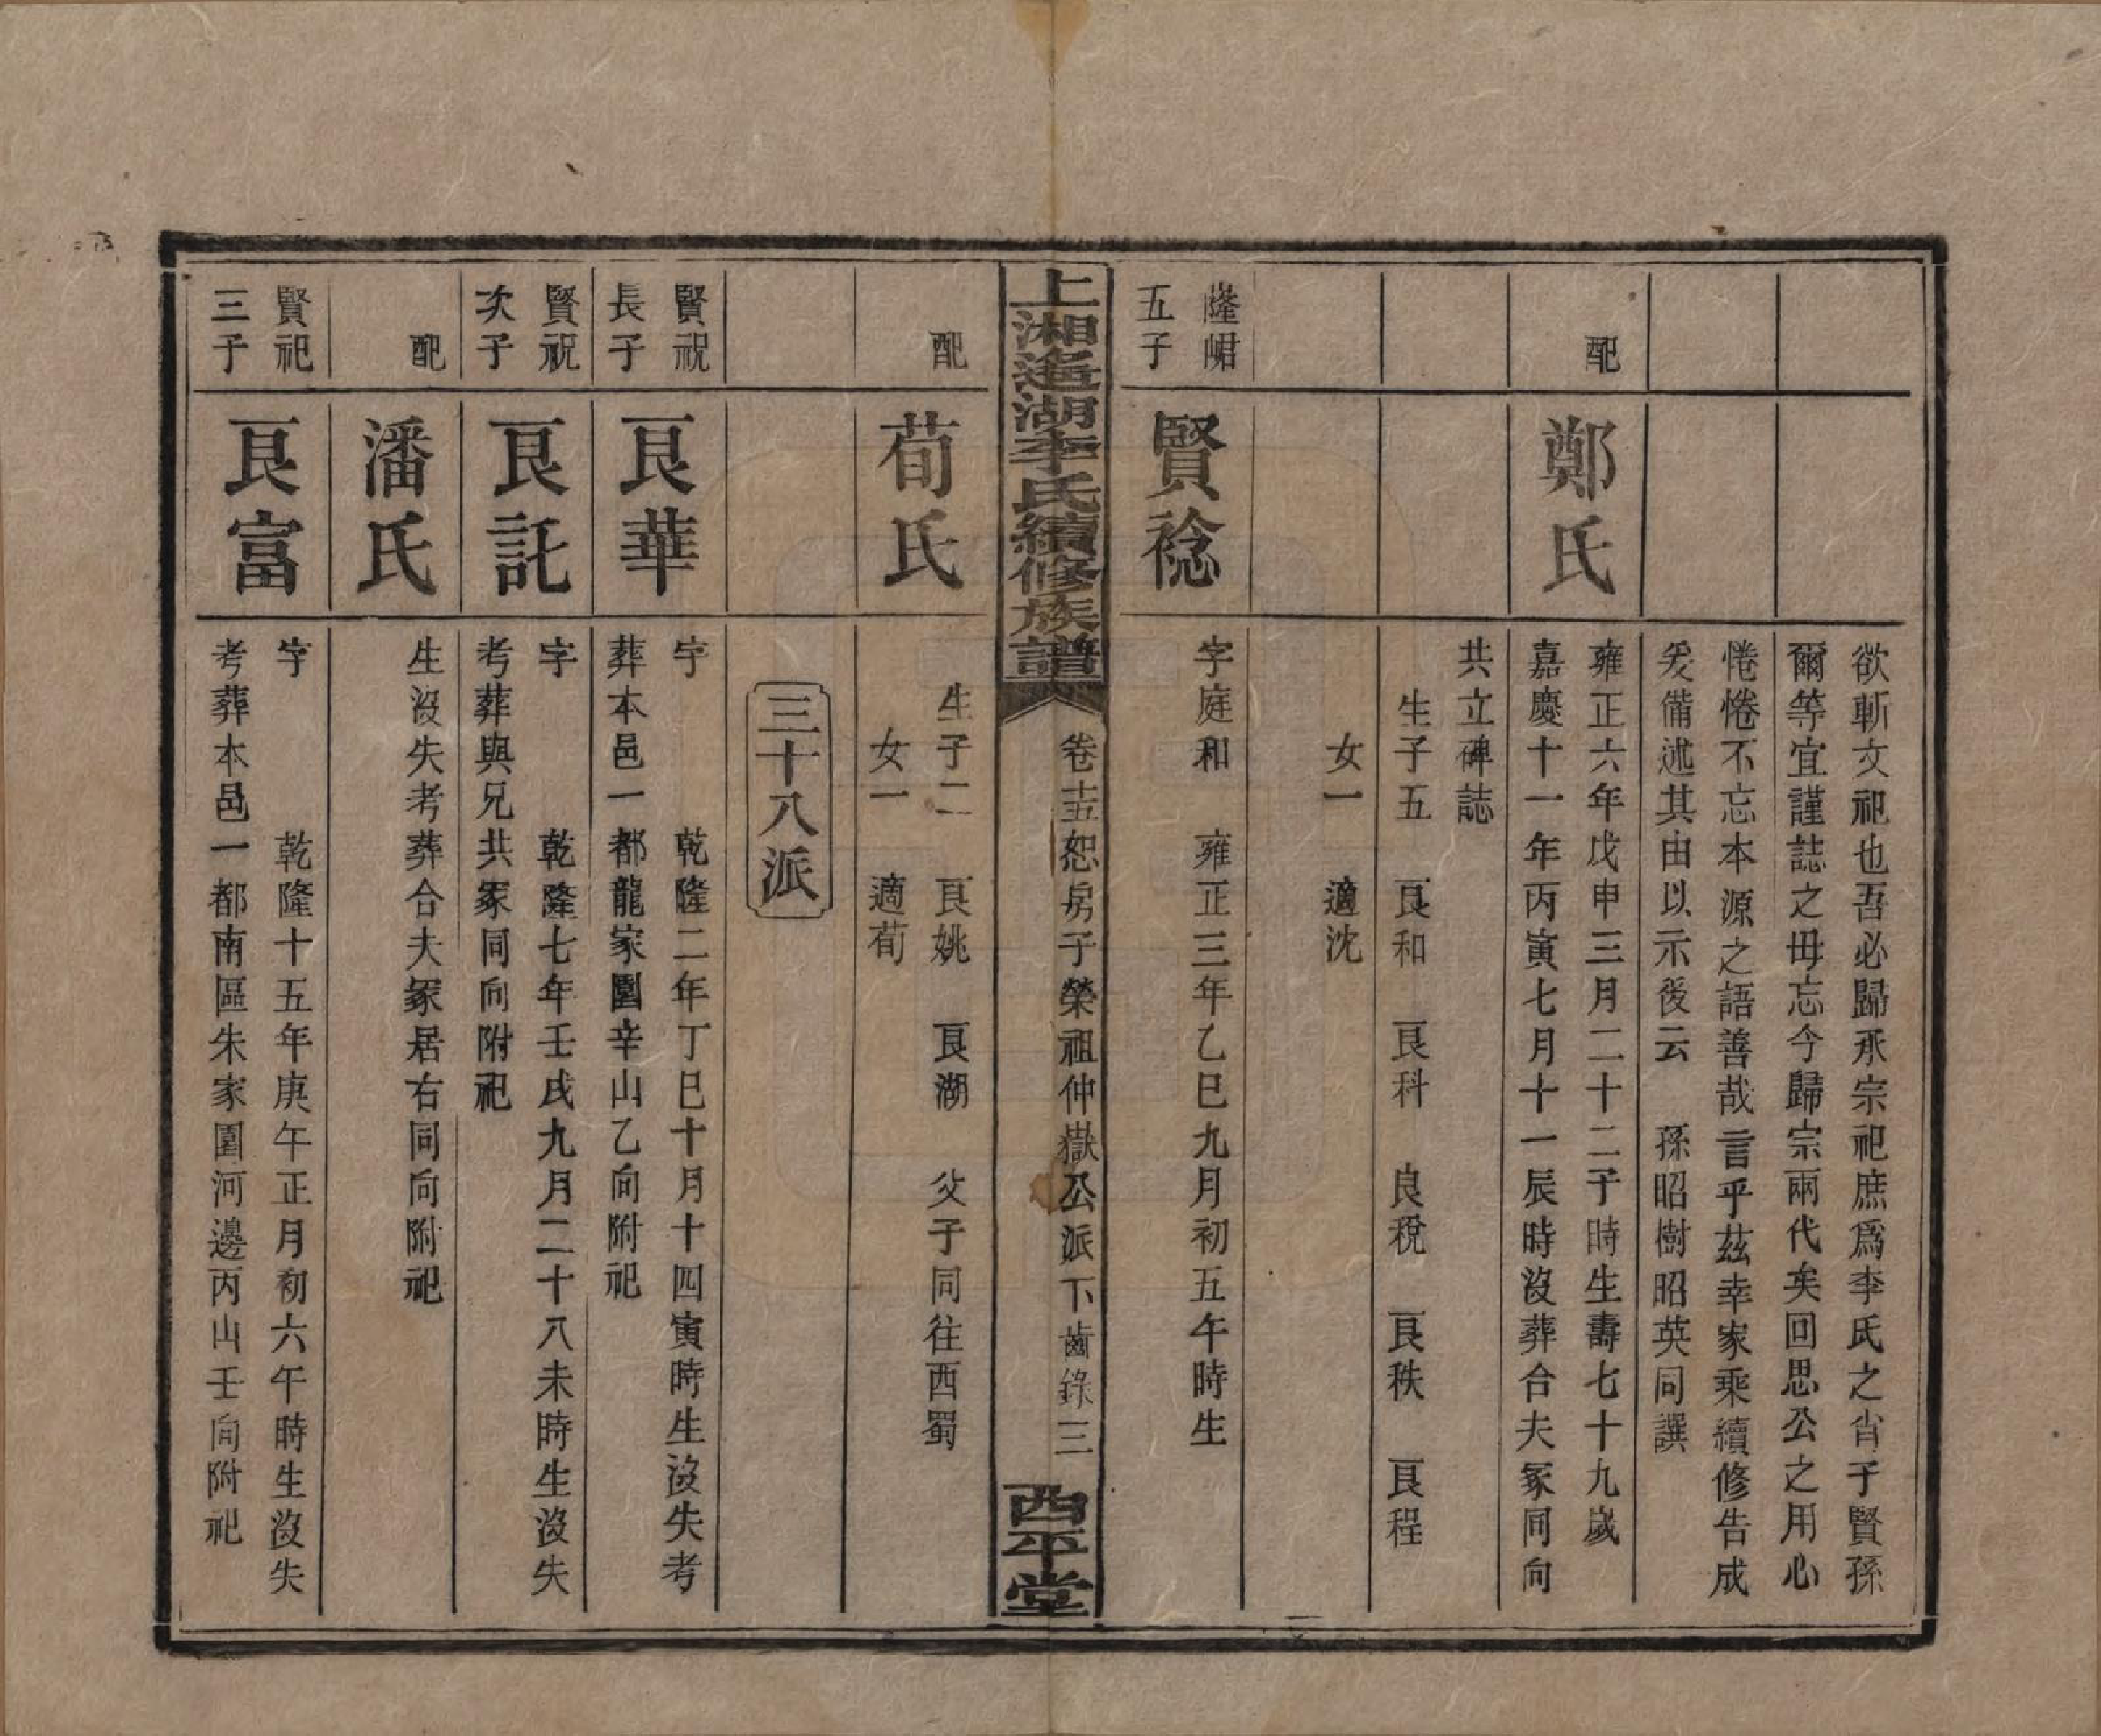 欲斬文祀也吾必歸承宗祀庶爲李氏之肖子賢孫
爾等宜謹誌之毋忘今歸宗兩代矣回思公之用心
惓惓不忘本源之語善哉言乎茲幸家乘續修告成
爰備述其由以示後云　孫昭樹昭英同譔
配
鄭氏
雍正六年戊申三月二十二子時生壽七十九歲
嘉慶十一年丙寅七月十一辰時沒葬合夫冢同向
共立碑誌
生子五　良和　良科　良稅　良秩　良程
女一　適沈
隆峮
五子
賢稔
字庭和　雍正三年乙巳九月初五午時生
上湘遙湖李氏續修族譜
卷十五恕房子榮祖仲嶽公派下齒錄三
西平堂
配
荀氏
生子二　良姚　良湖　父子同往西蜀
女一　適荀
三十八派
賢祝
長子
良華
字　乾隆二年丁巳十月十四寅時生沒失考
葬本邑一都龍家園辛山乙向附祀
賢祝
次子
良託
字　乾隆七年壬戌九月二十八未時生沒失
考葬與兄共冢同向附祀
配
潘氏
生沒失考葬合夫冢居右同向附祀
賢祀
三子
良富
字　乾隆十五年庚午正月初六午時生沒失
考葬本邑一都南區朱家園河邊丙山壬向附祀